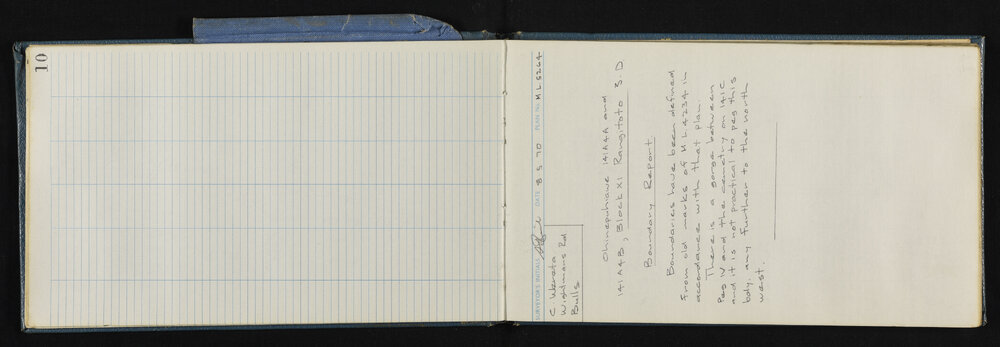 10
SURVEYOR'S INITIALS DATE 8 5 70 PLAN No. M L 5264
C Wereta
Wightmans Rd
Bulls
Ohinepuhiawe 141A4A and
141A4B, Block XI Rangitoto S.D
Boundary Report
Boundaries have been defined
from old marks of M L 4234 in
accordance with that plan.
There is a gorse between
Peg IV and the cemetry on 141C
and it is not practical to peg this
bdy any further to the north
west.